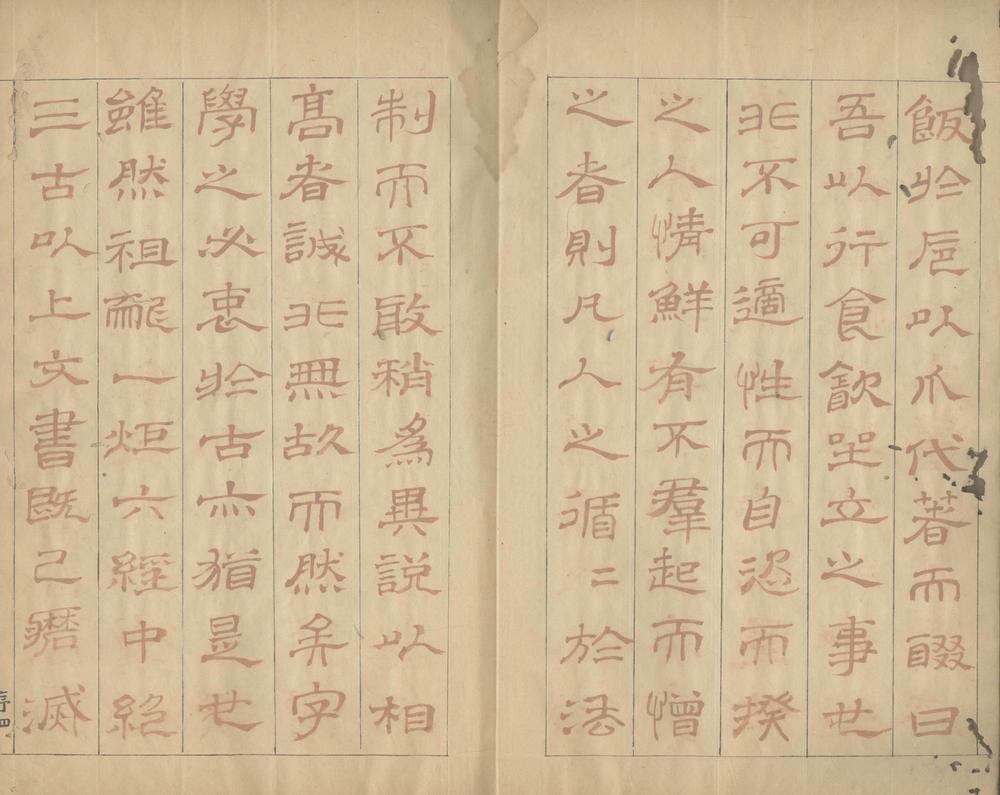 飯於卮以爪代著而啜曰
吾以行食㱃坐立之事也
非不可適性而自恣而揆
之人情鮮有不羣起而憎
之者則凡人之循二於法
制而不敢稍為異説以相
高者誠非無故而然矣字
學之必衷於古亦猶是也
雖然祖龍一炬六經中絶
三古以上文書既已滅
序四